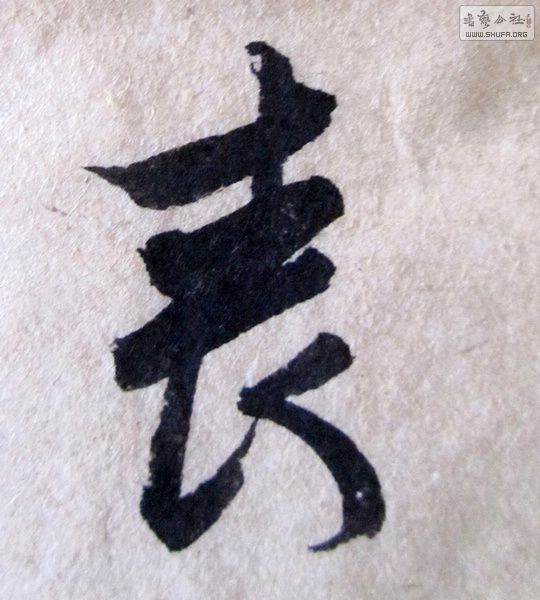 書藝公社
WWW.SHUFA.ORG
表